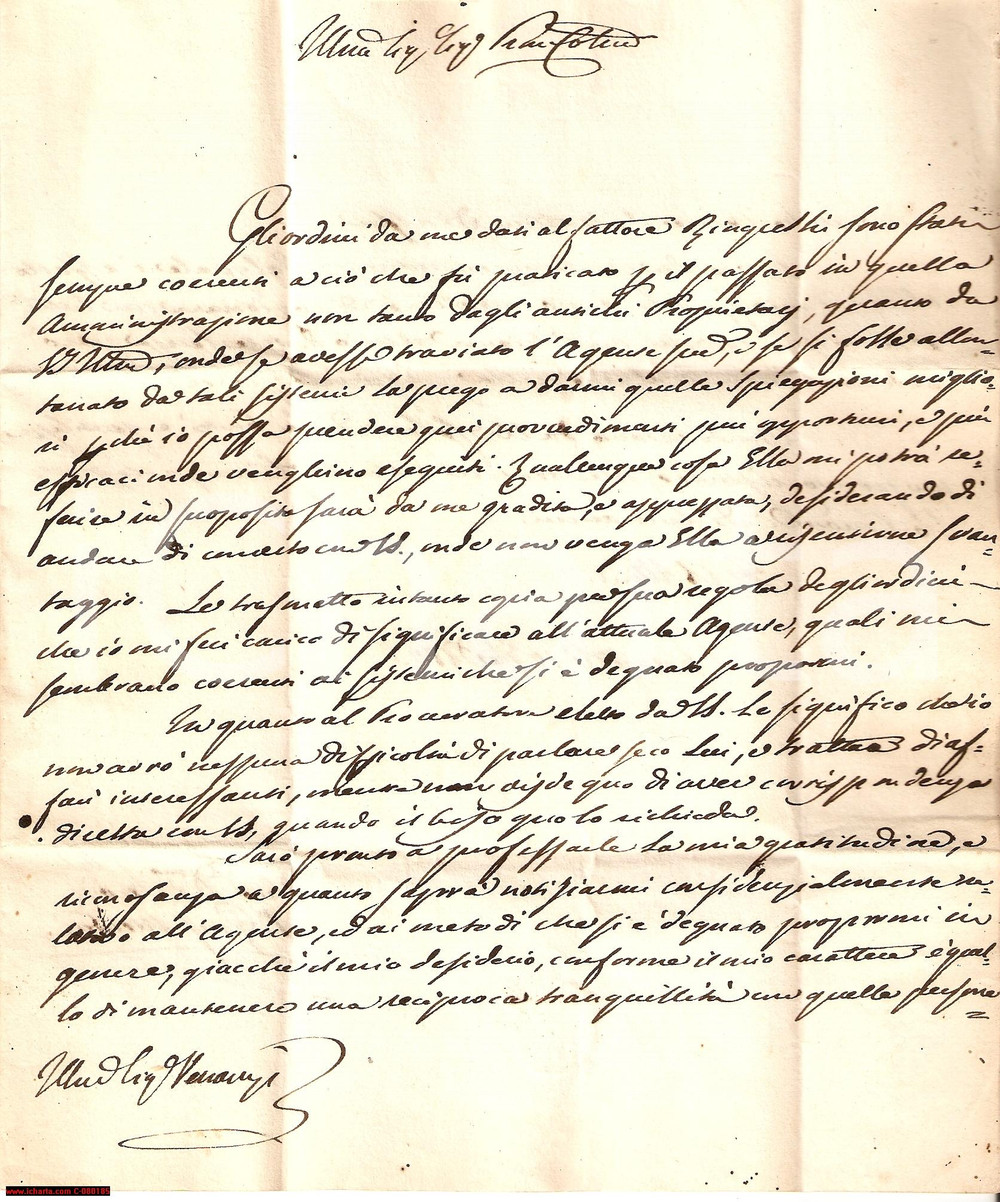 Illmo Sig. Sig. Pron Colmo
Gli ordini da me dati al fattore Zinquetti sono stati
sempre coerenti a ciò che fu praticato p il passato in quella
Amministrazione non tanto dagli antichi Proprietarj, quanto da
V.S. Illma, onde se avesse traviato l'Agente sud.o, e se si fosse allon=
tanato da tali sistemi la prego a darmi quelle spiegazioni miglio=
ri p chè io possa prendere quei provvedimenti più opportuni, e più
efficaci onde venghino eseguiti. Qualunque cosa Ella mi potrà re=
ferire in proposito sarà da me gradita, e apprezzata, desiderando di
andare di concerto con VS., onde non venga Ella a risentirne svan=
taggio. Le trasmetto intanto copia per sua regola degli ordini
che io mi feci carico di significare all'attuale Agente, quali mi
sembrano coerenti ai sistemi che si è degnato propormi.
In quanto al Procuratore eletto da VS. Le significo che io
non avrò nessuna difficoltà di parlare seco Lui, e trattare di af=
fari interessanti, mentre non isdegno di aver corrispondenza
diretta con VS, quando il bisogno lo richieda.
Sarò pronto a professarle la mia gratitudine, e
riconoscenza a quanto saprà notiziarmi confidenzialmente re=
lativo all'Agente, ed ai metodi che si è degnato propormi in
genere, giacchè il mio desiderio, conforme il mio carattere è quel=
lo di mantenere una reciproca tranquillità con quelle persone
Illmo Sig.
www.icharta.com C-080185